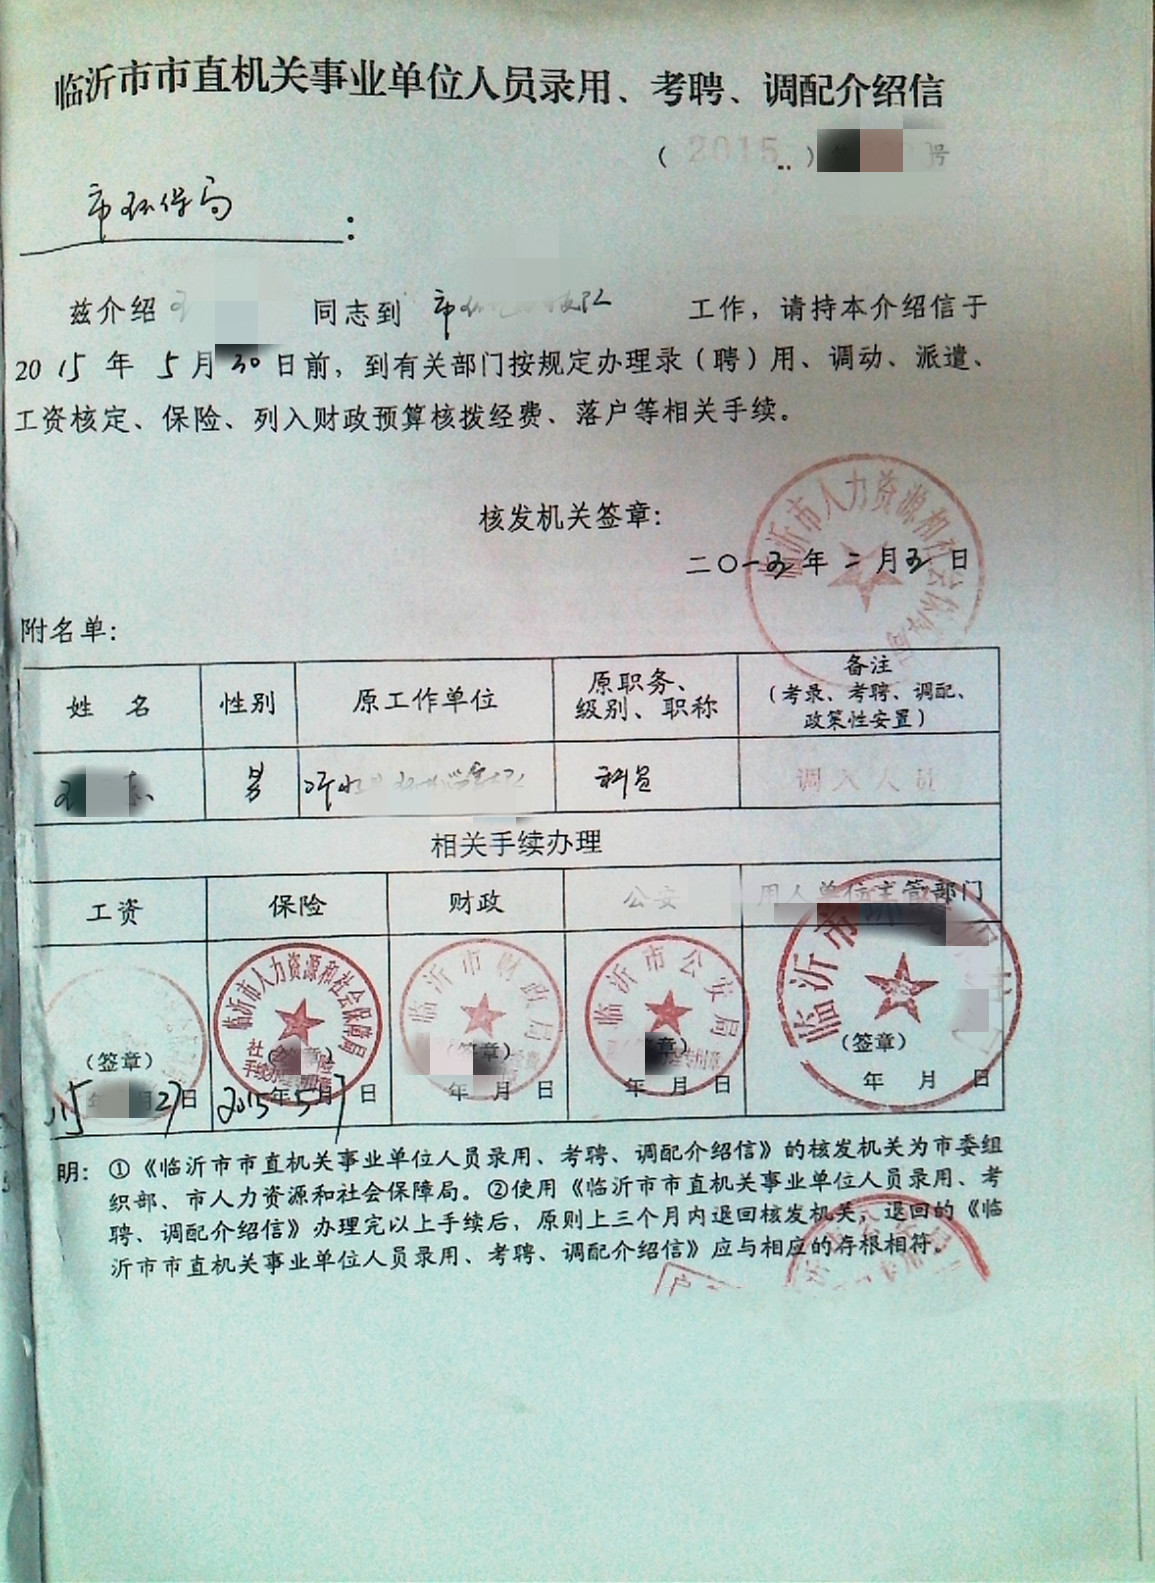 临沂市市直机关事业单位人员录用、考聘、调配介绍信
（2015）号
市环保局：
兹介绍 同志到 市 工作，请持本介绍信于
2015年5月30日前，到有关部门按规定办理录（聘）用、调动、派遣、
工资核定、保险、列入财政预算核拨经费、落户等相关手续。
核发机关签章：
临沂市人力资源和社会保障局
二〇一五年二月五日
附名单：
姓 名 性别 原工作单位 原职务、级别、职称 备注（考录、考聘、调配、政策性安置）
男 科员 调入人员
相关手续办理
工资 保险 财政 公安 用人单位主管部门
临沂市人力资源和社会保障局 临沂市财政局 临沂市公安局 临沂市
（签章） （签章） （签章） （签章） （签章）
15年 月27日 2015年5月7日 年 月 日 年 月 日 年 月 日
明：①《临沂市市直机关事业单位人员录用、考聘、调配介绍信》的核发机关为市委组
织部、市人力资源和社会保障局。②使用《临沂市市直机关事业单位人员录用、考
聘、调配介绍信》办理完以上手续后，原则上三个月内退回核发机关，退回的《临
沂市市直机关事业单位人员录用、考聘、调配介绍信》应与相应的存根相符。